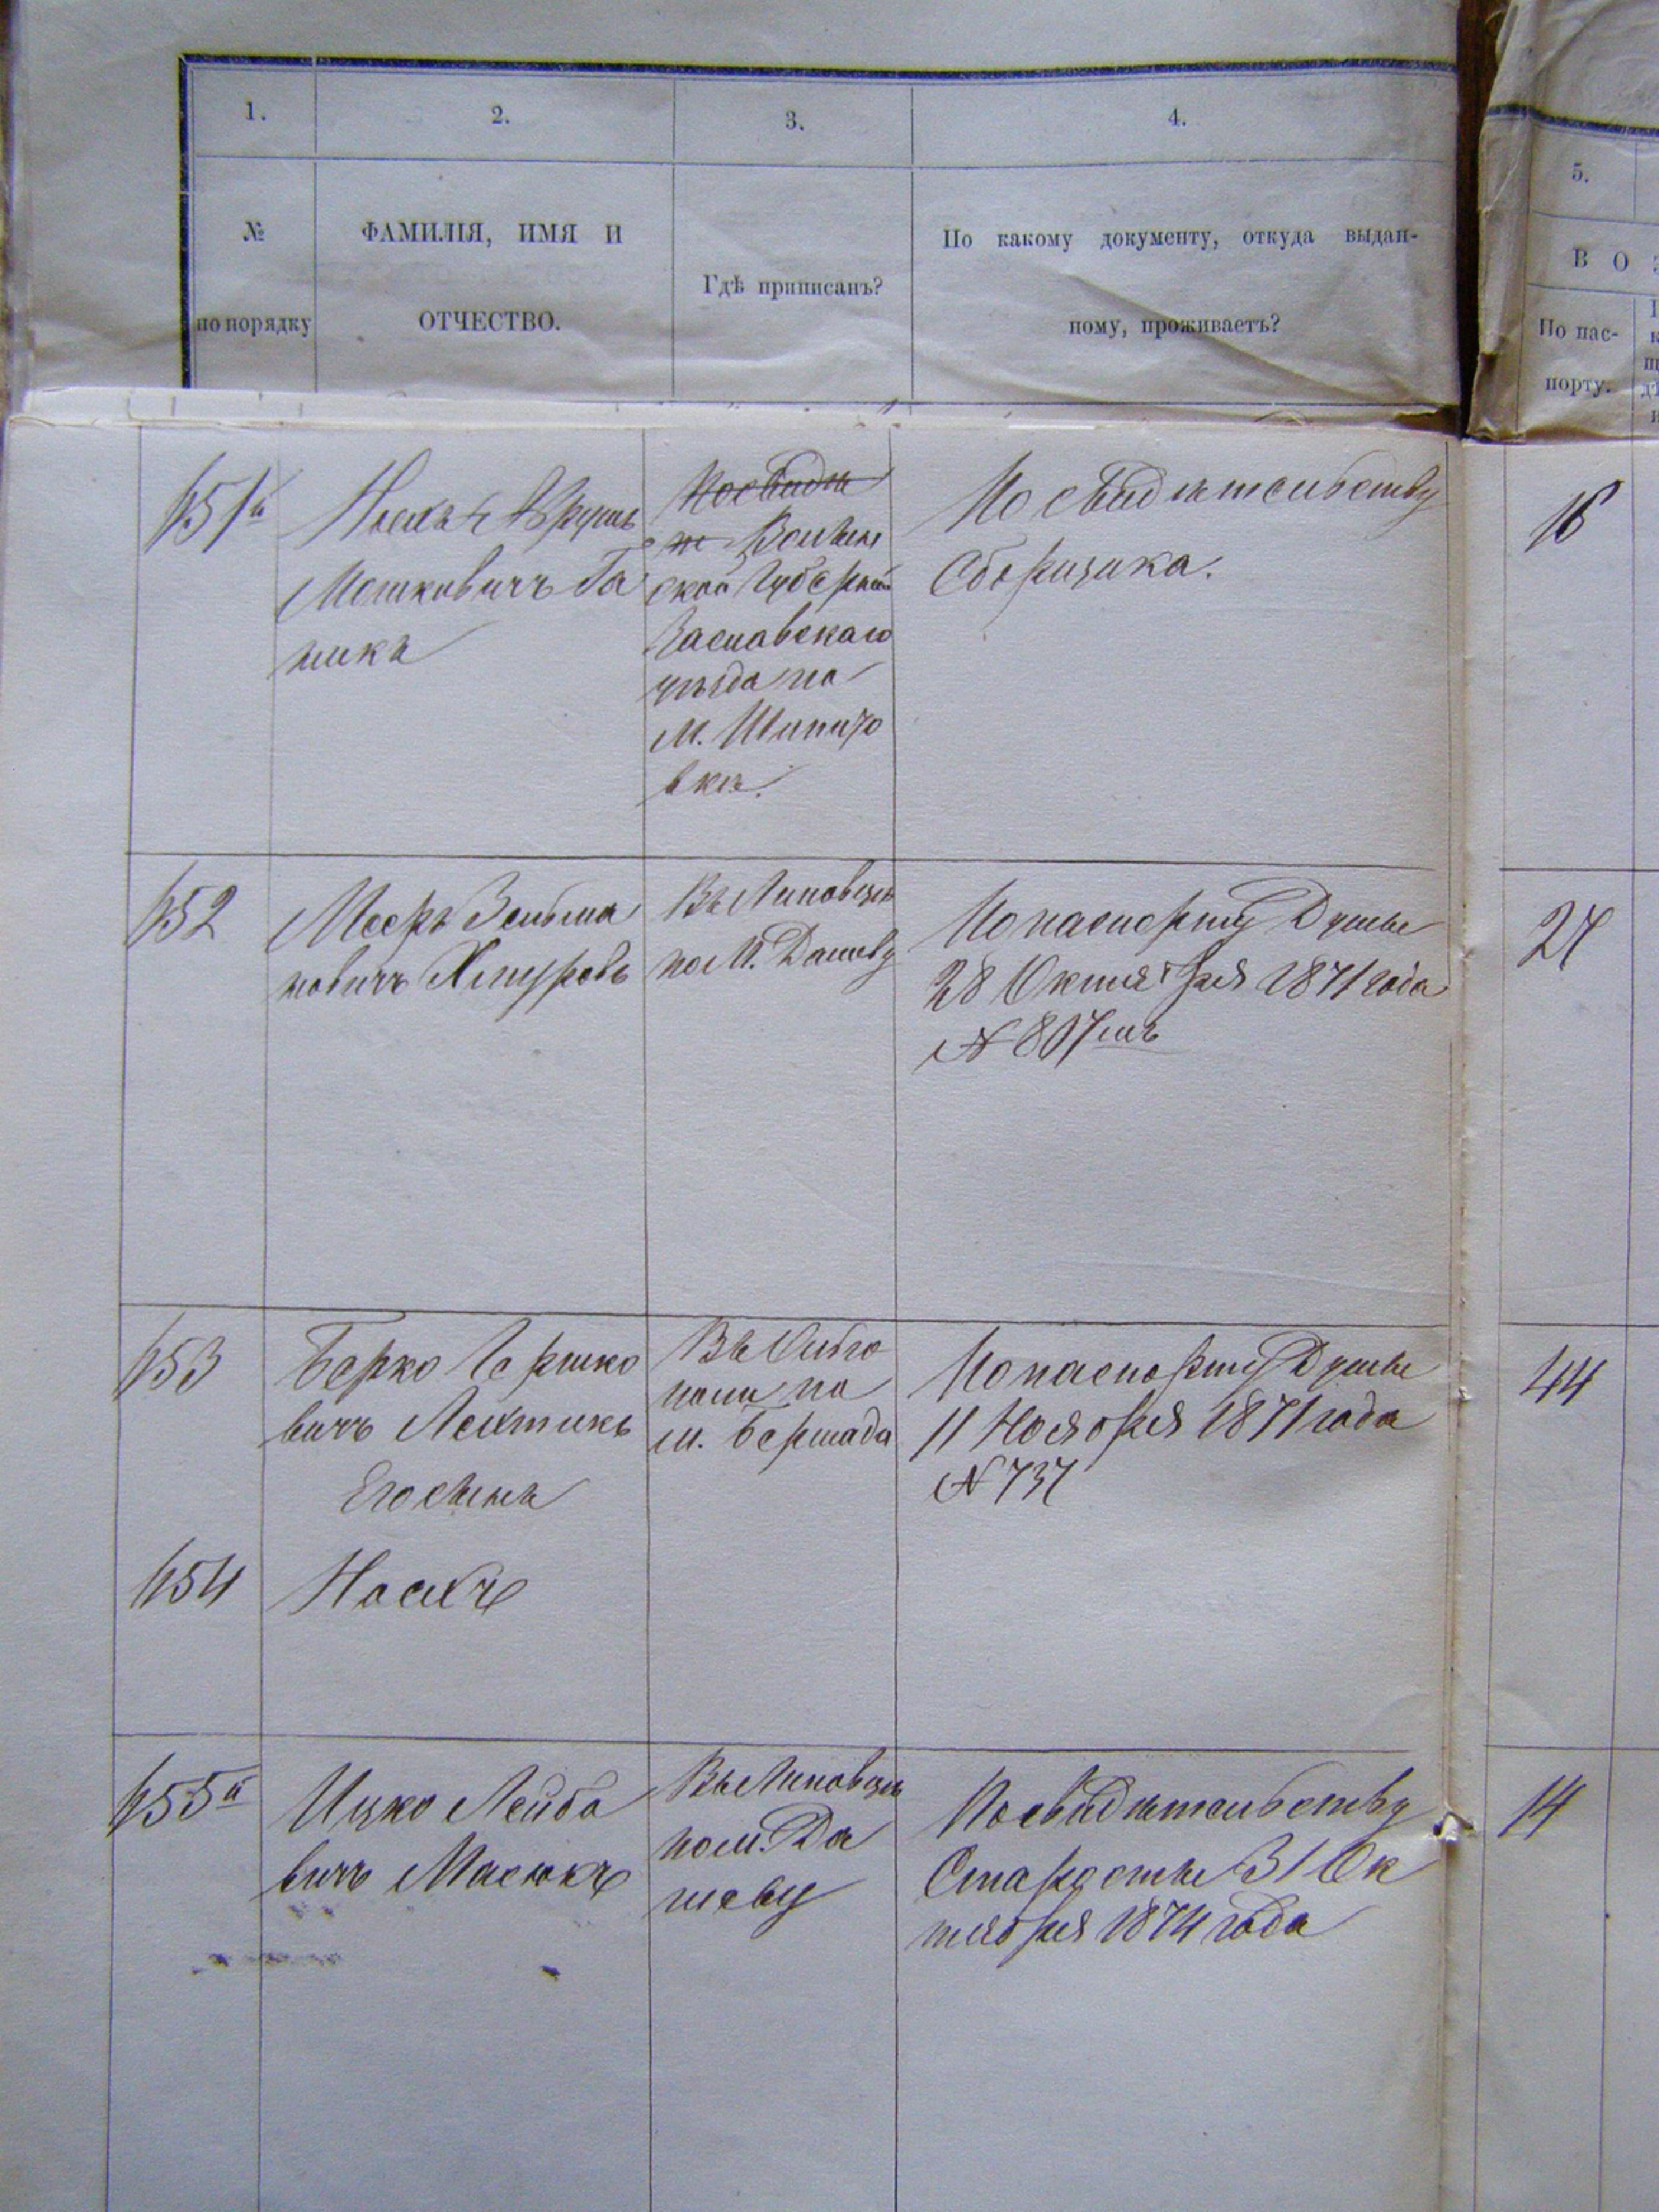 1.
2.
3.
4.
5.
№
по порядку
ФАМИЛІЯ, ИМЯ И
ОТЧЕСТВО.
Гдѣ приписанъ?
По какому документу, откуда выдан-
ному, проживаетъ?
В О
По пас-
порту.
651
Мошковичъ Га
никъ
Волынс
кой Губерніи
Заславскаго
уѣзда по
М. Шепето
вкѣ.
По свидѣтельству
Сборщика.
16
652
Мееръ Зельма
новичъ Хмуровъ
Въ Липовцѣ
по М. Дашеву
По паспорту Думы
28 Октября 1871 года
№ 807
27
653
Берко Гершко
вичъ
Его сынъ
Въ Ольго
поли по
м. Бершада
По паспорту Думы
11 Ноября 1871 года
№ 737
44
654
655
Ицко Лейбо
вичъ Масюкъ
Въ Липовцѣ
по м. Да
шеву
По свидѣтельству
Старосты 31 Ок
тября 1874 года
14